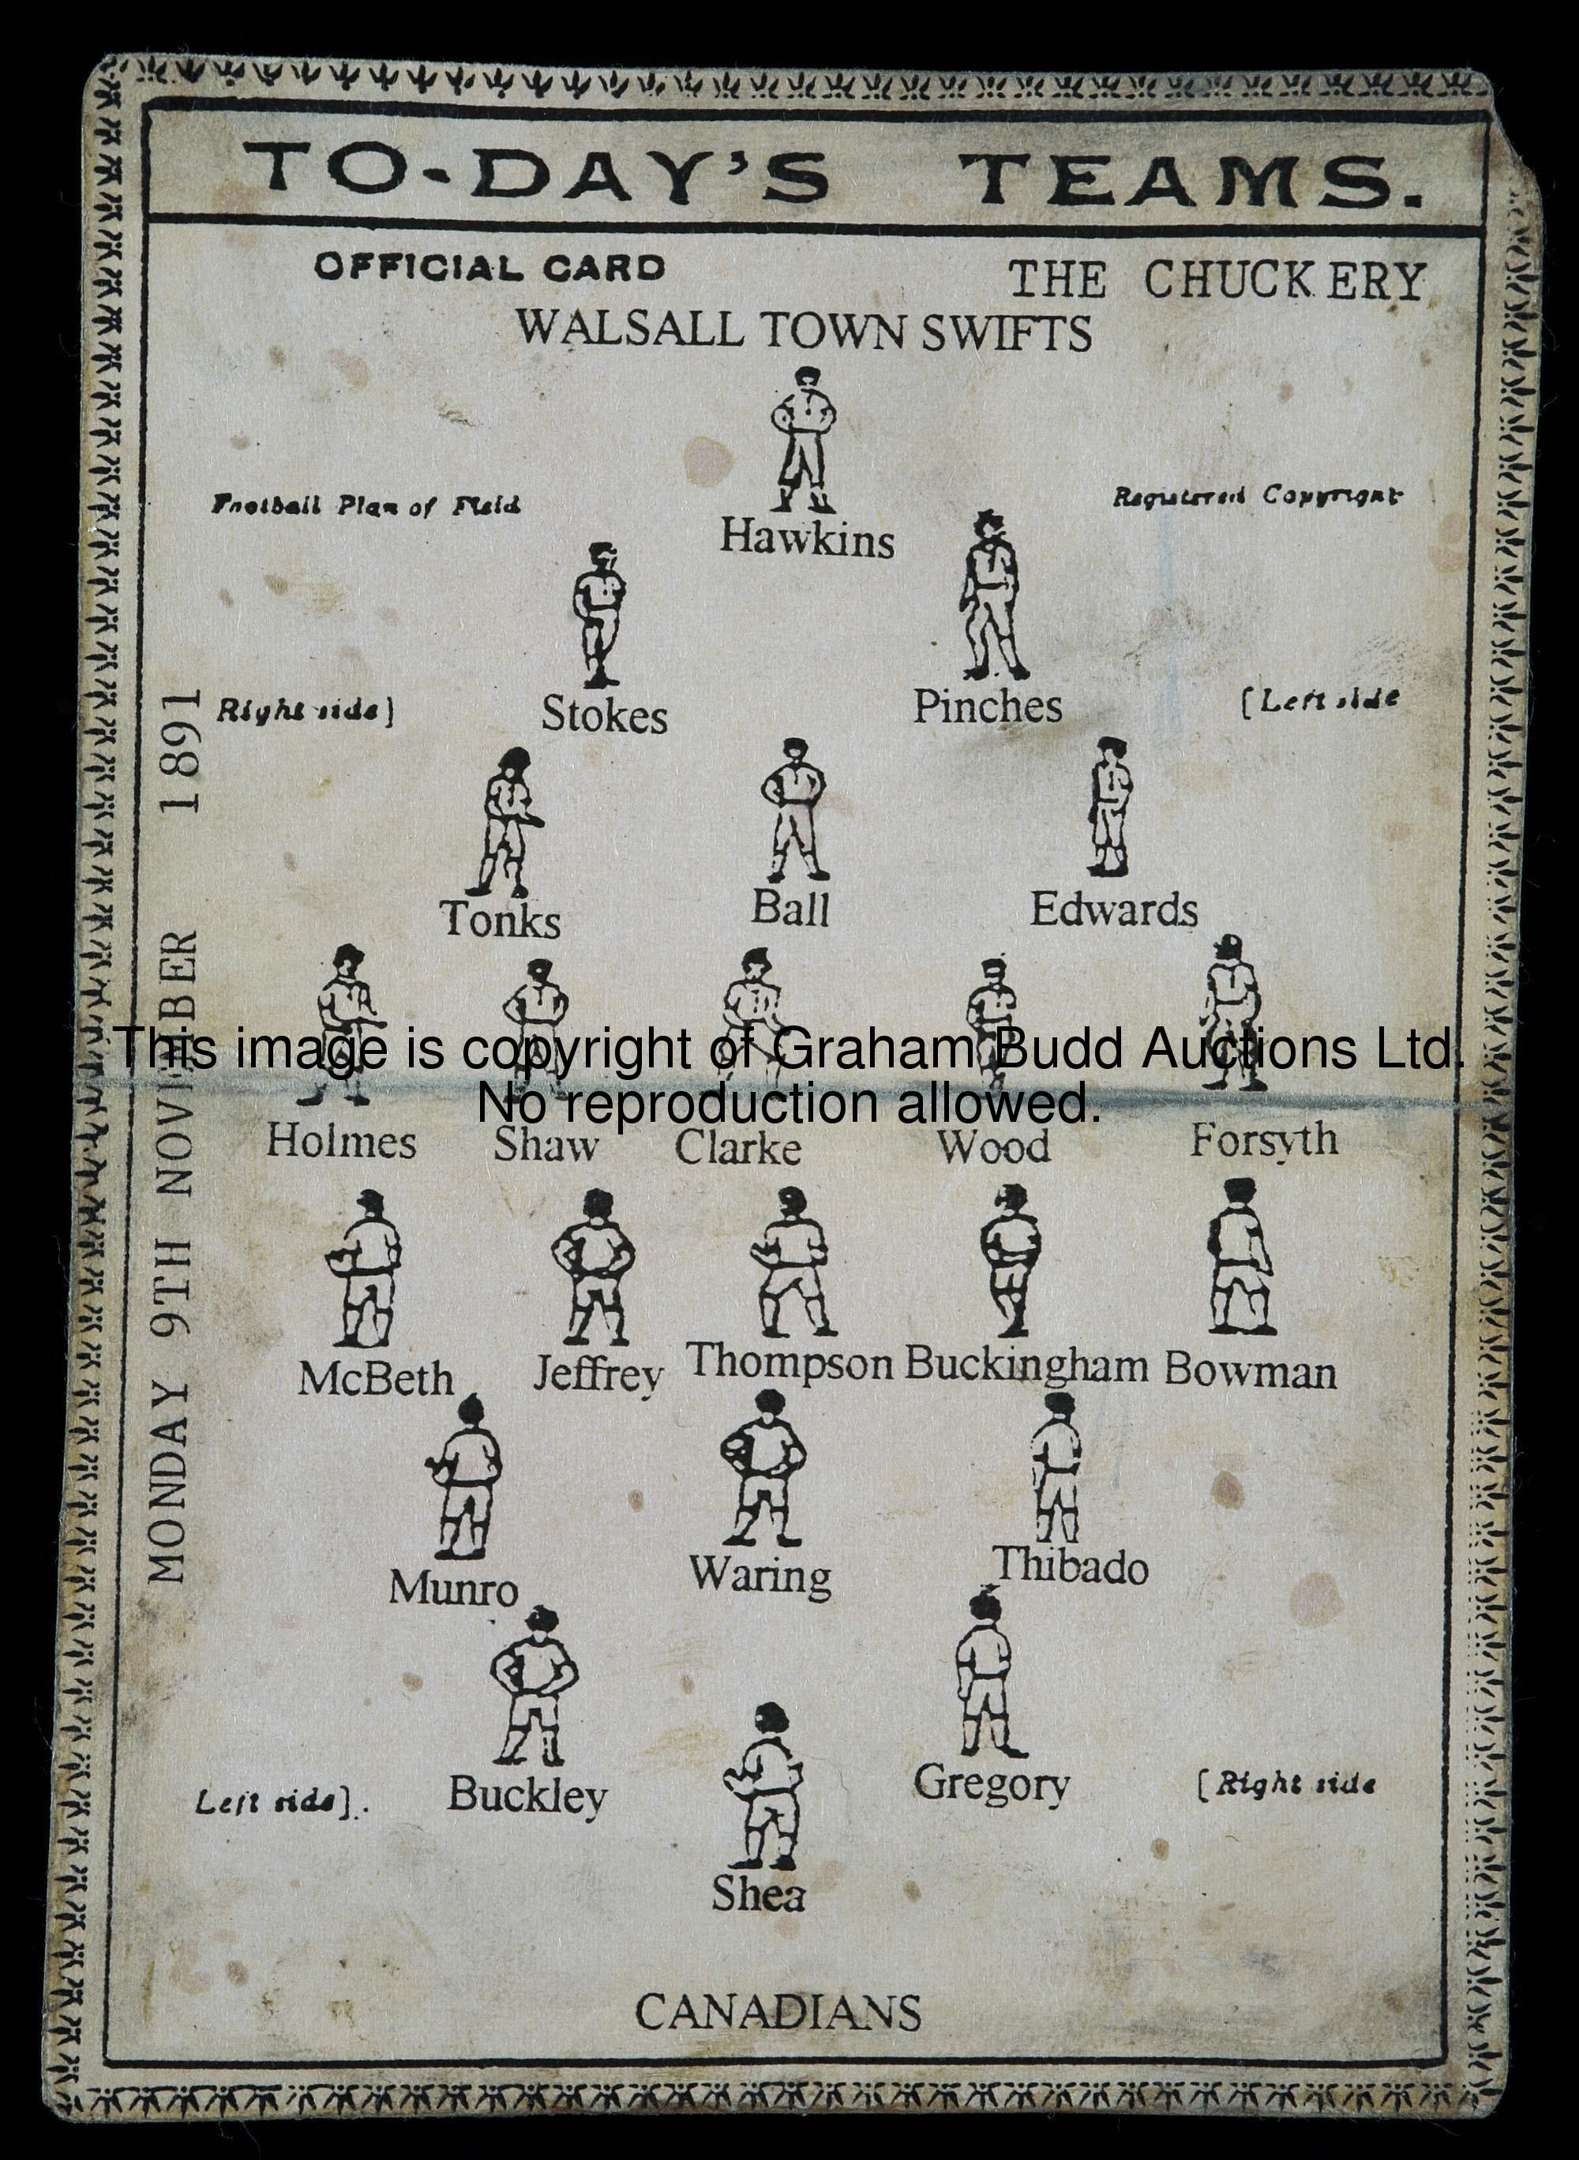 TO-DAY'S TEAMS.
OFFICIAL CARD
THE CHUCKERY
WALSALL TOWN SWIFTS
Football Plan of Field
Registered Copyright
Hawkins
Right side]
Stokes
Pinches
[Left side
Tonks
Ball
Edwards
MONDAY 9TH NOVEMBER 1891
This image is copyright of Graham Budd Auctions Ltd.
No reproduction allowed.
Holmes Shaw Clarke Wood Forsyth
McBeth Jeffrey Thompson Buckingham Bowman
Munro Waring Thibado
Left side].
Buckley
Gregory
[Right side
Shea
CANADIANS